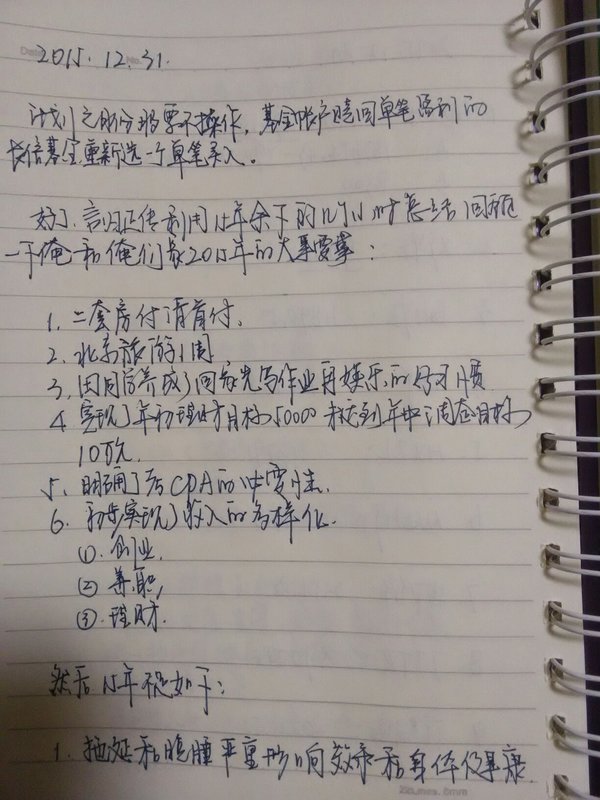 2015.12.31.
计划之的分。要不操作,基金帐户赎回单笔留利的
长信基金重新选一个单笔买入。
好了,言归正传利用15年余下的几个小时总结回顾
一下俺和俺们家2015年的大事要事:
1. 二套房付清首付。
2. 北京旅游1周
3. 因同学养成了回家先写作业再娱乐的好习惯
4 实现了年初理财目标50000 接近到年中调态目标
10万元.
5. 明确了考CPA的必要性.
6. 初步实现了收入的多样化.
①. 创业,
② 兼职,
③. 理财.
然后15年不足如下:
1. 拖延和臃肿严重影响效率和身体健康
Date